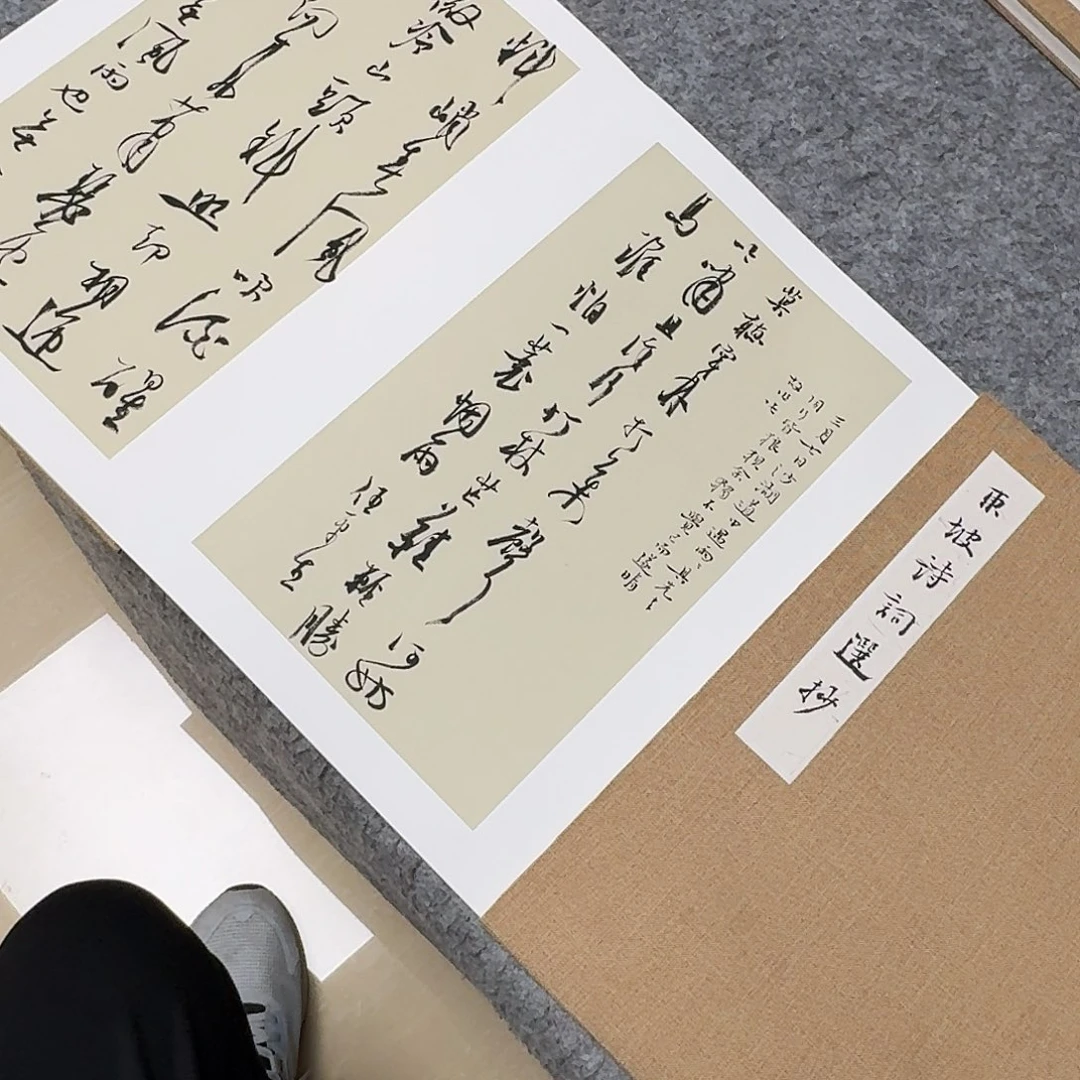 東坡诗詞選抄
三月七日沙湖道中遇雨雨具先去
同行皆狼狽余獨不覺已而遂晴
故作此
莫聽穿林打葉聲何妨
吟嘯且徐行竹杖芒鞋輕勝
馬誰怕一蓑烟雨任平生
料峭春風吹酒醒
微冷山頭斜照却相迎
向來蕭瑟處
無風雨也無